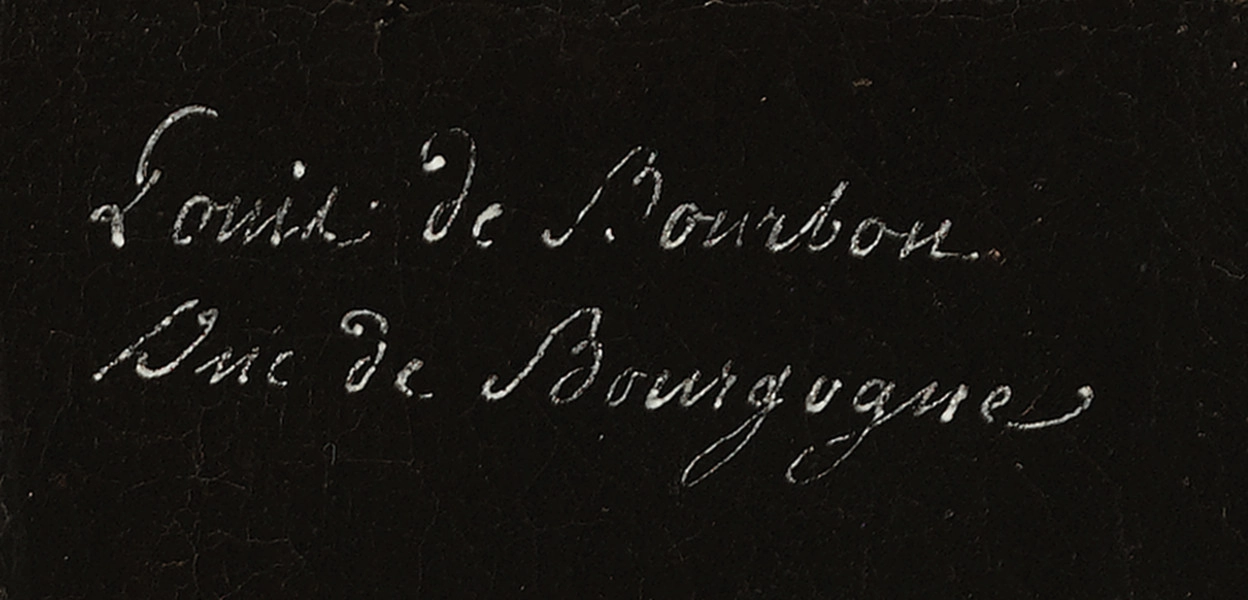 Louis de Bourbon
Duc de Bourgogne